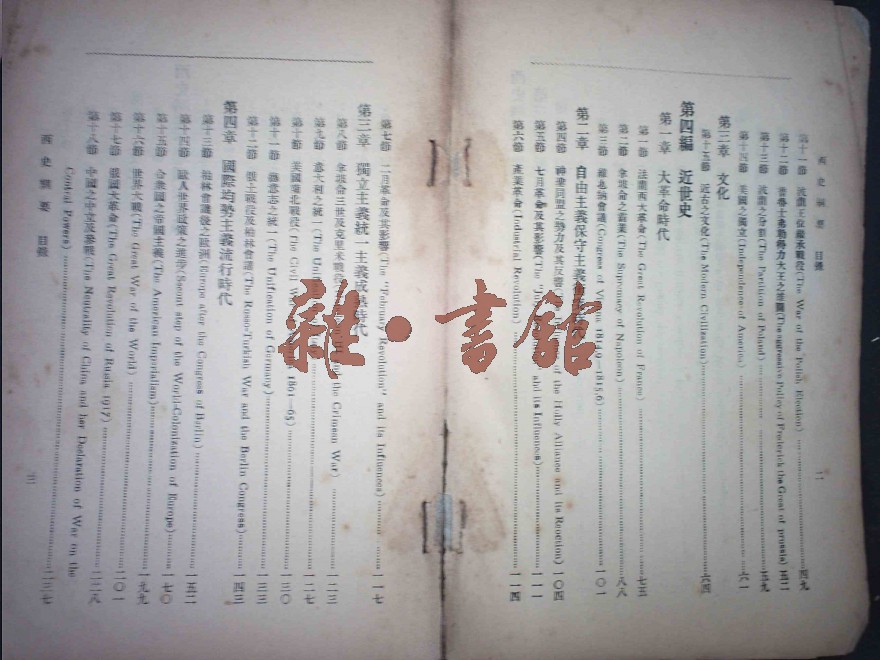 西史綱要 目錄
第十一節 波蘭王位繼承戰役(The War of the Polish Election)……四九
第十二節 普魯士弗勒得力大王之(The aggressive Policy of Frederick the Great of prussia)
第十三節 波蘭之分割(The Partition of Poland)……五九
第十四節 美國之獨立(Independence of America)……六一
第三章 文化
第十五節 近古之文化(The Modern Civilisation)……六四
第四編 近世史
第一章 大革命時代
第一節 法蘭西大革命(The Great Revolution of France)……七五
第二節 拿坡侖之霸業(The Supremacy of Napoleon)……八八
第三節 維也納會議(Congress of Vienna 1814,9—1815,6)……一〇一
第二章 自由主義保守主義
第四節 神聖同盟之勢力及其反響 of the Holly Alliance and its Reaction)一〇四
第五節 七月革命及其影響(The and its Influences)……一一一
第六節 產業革命(Industrial Revolution)……一一四
第七節 二月革命及其影響(The "February Revolution" and its Influences)……一一七
第三章 獨立主義統一主義成 時代
第八節 拿坡侖三世及克里米戰役 the Crimean War)……一二三
第九節 意大利之統一(The……一二七
第十節 美國南北戰役(The Civil War 1861—65)……一三〇
第十一節 德意志之統一(The Unification of Germany)……一三三
第十二節 俄土戰役及柏林會議(The Russo-Turkish War and the Berlin Congress)……一四三
第四章 國際均勢主義流行時代
第十三節 柏林會議後之歐洲(Europe after the Congress of Berlin)……一五二
第十四節 歐人世界政策之進步(Secont step of the World-Colonization of Europe)……一七〇
第十五節 合衆國之帝國主義(The American Imperialism)
第十六節 世界大戰(The Great War of the World)……一九九
第十七節 俄國大革命(The Great Revolution of Russia 1917)……二〇一
第十八節 中國之中立及參戰(The Neutrality of China and her Declaration of War on the
Central Powers)……二三七
西史綱要 目錄
雜·書館